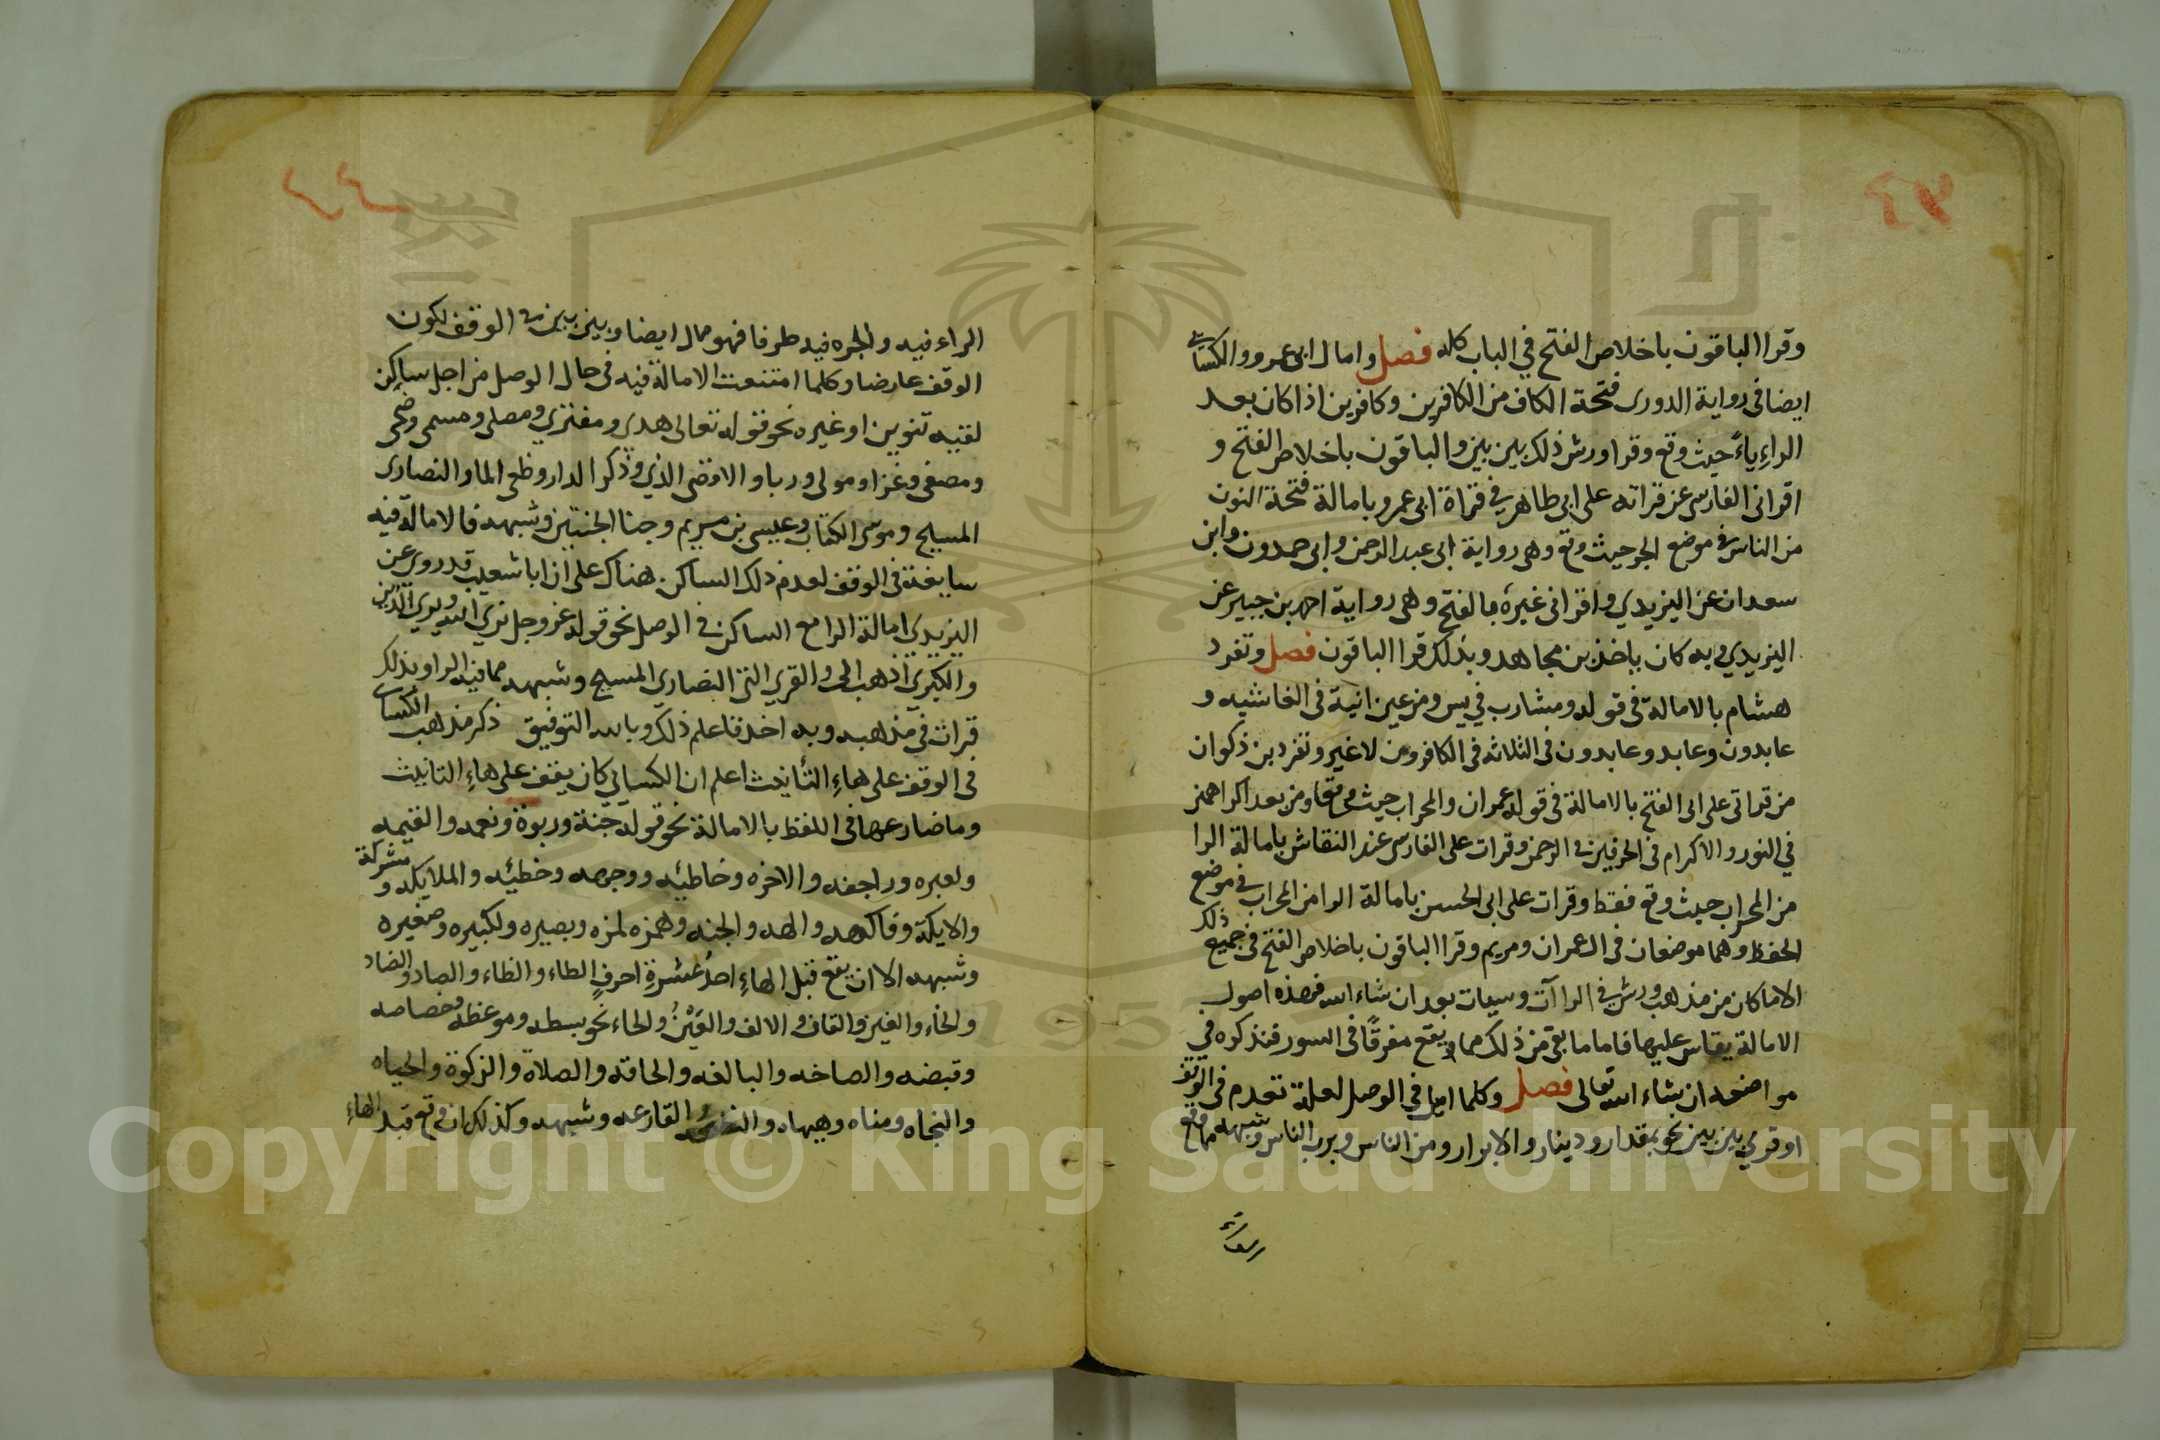 وقرا الباقون باخلاص الفتح في الباب كله فصل وامال ابى عمرو والكسائي
ايضا في رواية الدورى فتحة الكاف من الكافرين وكافرين اذا كان بعد
الراءِ ياءً حيث وقع وقرا ورش ذلك بين بين والباقون باخلاص الفتح و
اقرانى الفارسى عن قراته على ابى طاهر في قراة ابى عمرو بامالة فتحة النون
من الناس في موضع الجر حيث وقع وهى رواية ابى عبد الرحمن وابى حمدون وابن
سعدان عن اليزيدي واقرانى غيره بالفتح وهى رواية احمد بن جبير عن
اليزيدي وبه كان ياخذ بن مجاهد وبذلك قرا الباقون فصل وتفرد
هشام بالامالة فى قوله ومشارب في يس ومن عين انية فى الغاشيه و
عابدون وعابد وعابدون فى الثلاثه فى الكافرون لا غير وتفرد بن ذكوان
من قراتى على ابى الفتح بالامالة فى قوله عمران والمحراب حيث وقعا ومن بعد اكراههن
في النور والاكرام فى الحرفين فى الرحمن وقرات على الفارسى عن النقاش بامالة الرا
من المحراب حيث وقع فقط وقرات على ابى الحسن بامالة الرا من المحراب فى موضع
الخفظ وهما موضعان فى ال عمران ومريم وقرا الباقون باخلاص الفتح فى جميع ذلك
الا ما كان من مذهب ورش فى الراآت وسيات بعد ان شاء الله فهذه اصول
الامالة يقاس عليها فاما ما بقى من ذلك مما يقع مفرقًا فى السور فنذكره في
مواضعه ان شاء الله تعالى فصل وكلما اميل في الوصل لعلة تعدم فى الوقف
او قري بين بين نحو بمقدار ودينار والابرار ومن الناس وبرب الناس وشبهه مما تقع
الراء فيه والجره فيه طرفا فهو ممال ايضا وبين بين فى الوقف لكون
الوقف عارضا وكلما امتنعت الامالة فيه فى حال الوصل من اجل ساكن
لقيه تنوين او غيره نحو قوله تعالى هدى ومفتري ومصلى ومسمى وضحى
ومصفى وغزا ومولى وربا والاقصى الذي وذكرا الدار وطغى الما والنصارى
المسيح وموسى الكتاب وعيسى بن مريم وجنا الجنتين وشبهه فالامالة فيه
سايغة فى الوقف لعدم ذلك الساكن هناك على ان ابا شعيب قد روى عن
اليزيدي امالة الرا مع الساكن فى الوصل نحو قوله عز وجل نرى الله ويرى الذين
والكبري اذهب الى والقري التى النصاري المسيح وشبهه مما فيه الرا وبذلك
قرات فى مذهبه وبه اخذ فاعلم ذلك وبالله التوفيق ذكر مذهب الكسائي
فى الوقف على هاءِ التأنيث اعلم ان الكسايي كان يقف على هاءِ التانيث
وما ضارعها فى اللفظ بالامالة نحو قوله جنة وربوة ونعمه والقيمه
ولعبره وراجفه والاخره وخاطيئه ووجهه وخطيئه والملايكه ومشركة
والايكة وفاكهه والهه والجنه وهمزه لمزه وبصيره ولكبيره وصغيره
وشبهه الا ان يقع قبل الهاءِ احدُ عشرةِ احرفٍ الطاء والظاء والصاد والضاد
والخاء والغين والقاف والالف والعَيْنُ والحاء نحو بسطه وموعظه وخصاصه
وقبضه والصاخه والبالغه والحاقه والصلاة والزكوة والحياه
والنجاه ومناه وهيهاه القارعه وشبهه وكذلك ان وقع قبل الهاءِ